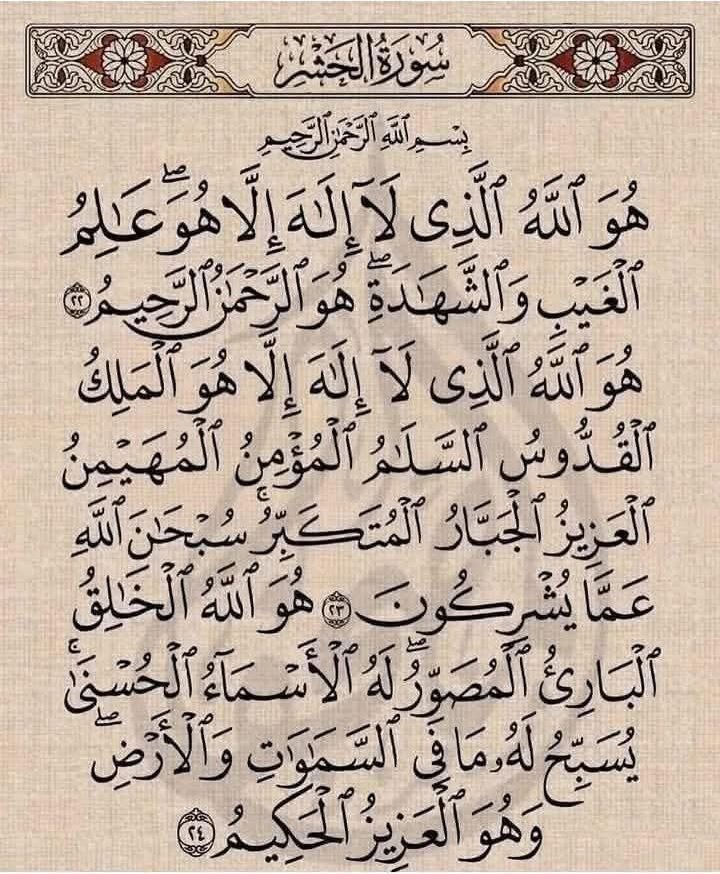 سُورَةُ الحَشْرِ
بِسْمِ اللَّهِ الرَّحْمَٰنِ الرَّحِيمِ
هُوَ ٱللَّهُ ٱلَّذِى لَآ إِلَٰهَ إِلَّا هُوَ ۖ عَٰلِمُ
ٱلْغَيْبِ وَٱلشَّهَٰدَةِ ۖ هُوَ ٱلرَّحْمَٰنُ ٱلرَّحِيمُ ٢٢
هُوَ ٱللَّهُ ٱلَّذِى لَآ إِلَٰهَ إِلَّا هُوَ ٱلْمَلِكُ
ٱلْقُدُّوسُ ٱلسَّلَٰمُ ٱلْمُؤْمِنُ ٱلْمُهَيْمِنُ
ٱلْعَزِيزُ ٱلْجَبَّارُ ٱلْمُتَكَبِّرُ ۚ سُبْحَٰنَ ٱللَّهِ
عَمَّا يُشْرِكُونَ ٢٣ هُوَ ٱللَّهُ ٱلْخَٰلِقُ
ٱلْبَارِئُ ٱلْمُصَوِّرُ ۖ لَهُ ٱلْأَسْمَآءُ ٱلْحُسْنَىٰ ۚ
يُسَبِّحُ لَهُۥ مَا فِى ٱلسَّمَٰوَٰتِ وَٱلْأَرْضِ ۖ
وَهُوَ ٱلْعَزِيزُ ٱلْحَكِيمُ ٢٤